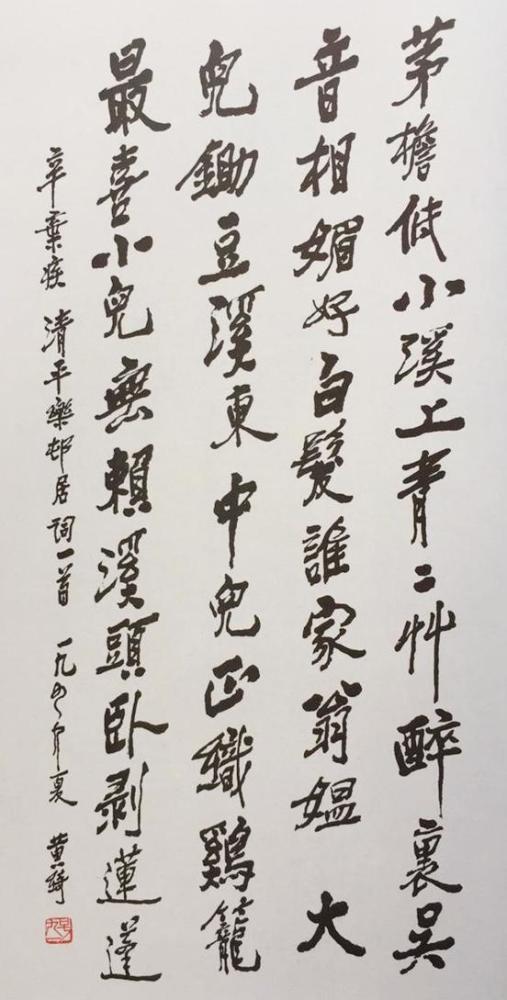 茅檐低小溪上青〻艸醉裏吳
音相媚好白髮誰家翁媼 大
兒鋤豆溪東中兒正織鷄籠
最喜小兒無賴溪頭卧剥蓮蓬
辛棄疾 清平樂邨居詞一首 一九年夏 黄綺